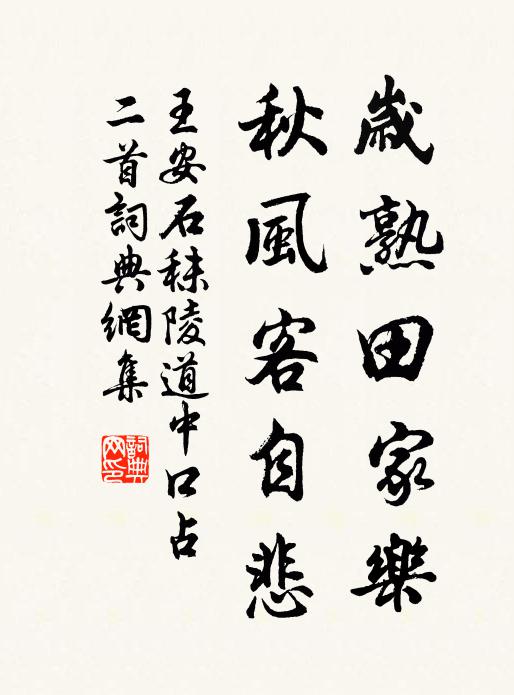 歲熟田家樂
秋風客自悲
王安石秣陵道中口占
二首詞典網集
詞典
网印